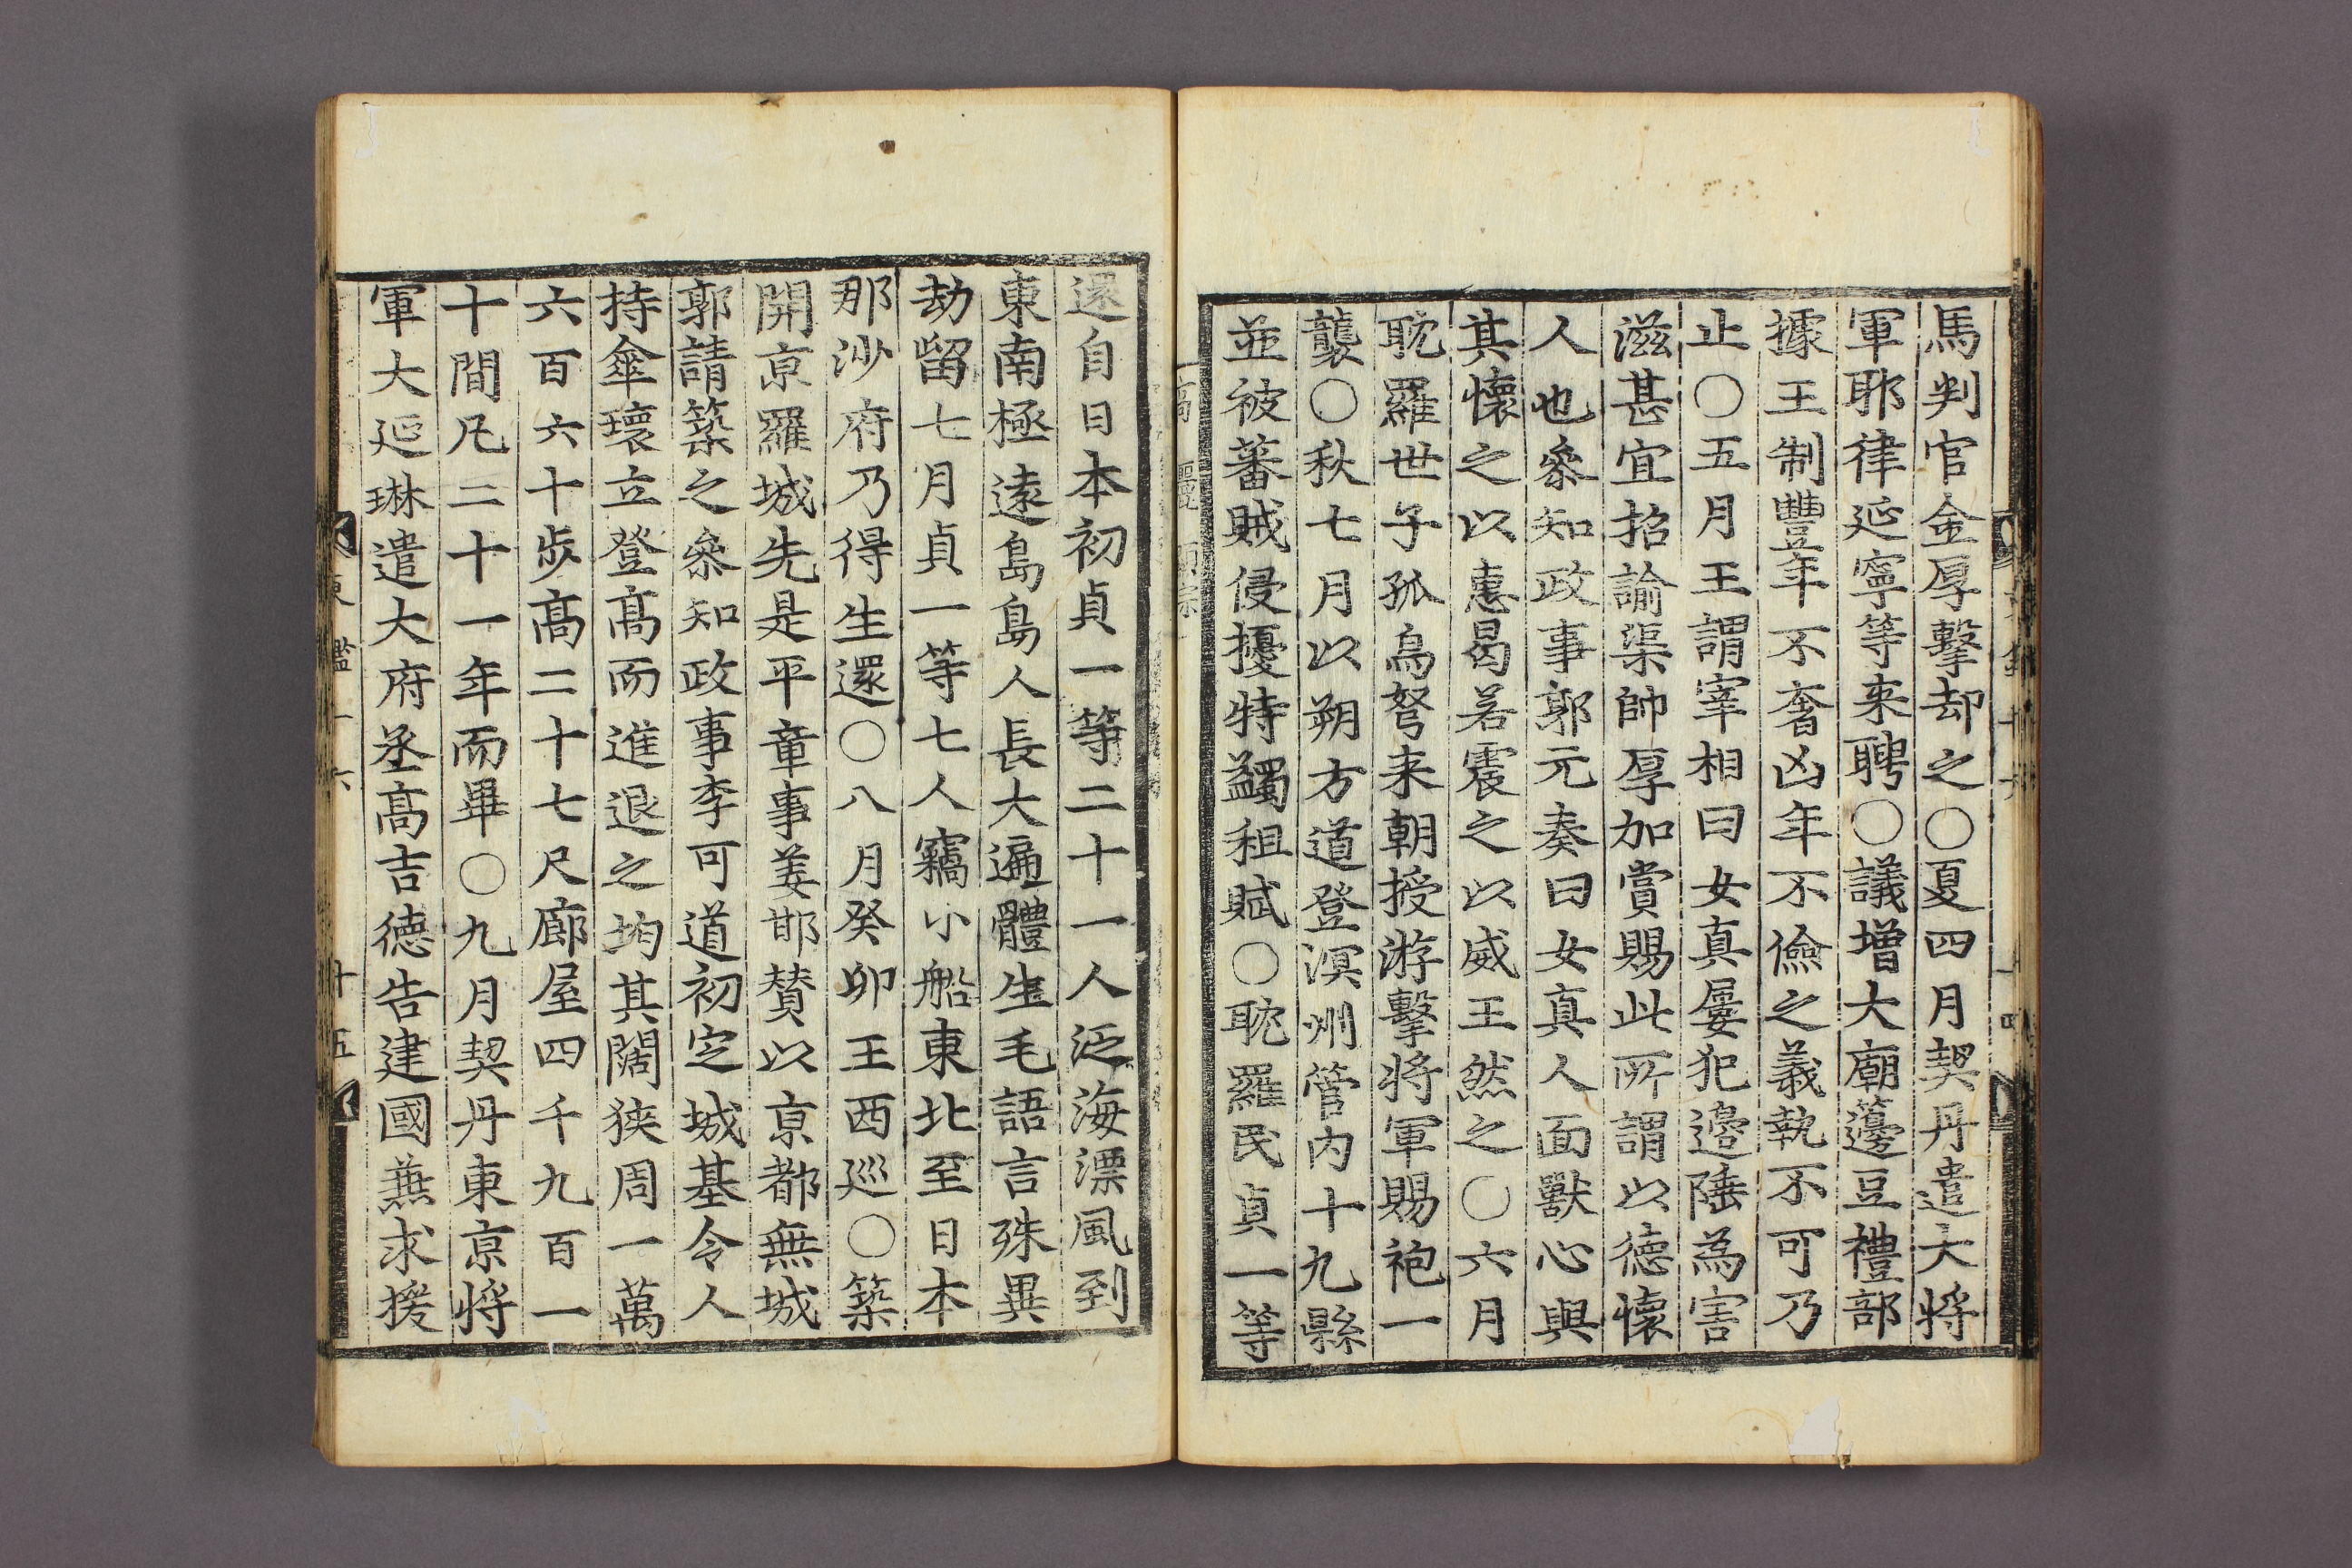 馬判官金厚擊却之○夏四月契丹遣大將
軍耶律延寧等来聘○議增大廟籩豆禮部
據王制豐年不奢凶年不儉之義執不可乃
止○五月王謂宰相曰女真屢犯邉陲為害
滋甚宜招諭渠帥厚加賞賜此所謂以德懷
人也叅知政事郭元奏曰女真人面獸心與
其懷之以惠曷若震之以威王然之○六月
耽羅世子孤烏弩来朝授游擊將軍賜袍一
襲○秋七月以朔方道登溟州管內十九縣
並被蕃賊侵擾特蠲租賦○耽羅民貞一等
還自日本初貞一等二十一人泛海漂風到
東南極逺島島人長大遍體生毛語言殊異
劫留七月貞一等七人竊小船東北至日本
那沙府乃得生還○八月癸卯王西巡○築
開京羅城先是平章事姜邯贊以京都無城
郭請築之叅知政事李可道初定城基令人
持傘環立登髙而進退之均其闊狹周一萬
六百六十步髙二十七尺廊屋四千九百一
十間凡二十一年而畢○九月契丹東京將
軍大延琳遣大府丞髙吉德告建國兼求援
東 鑑 十六 十五